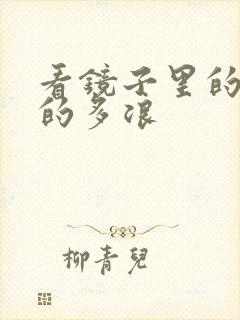 看镜子里的
的多浪
柳青兒